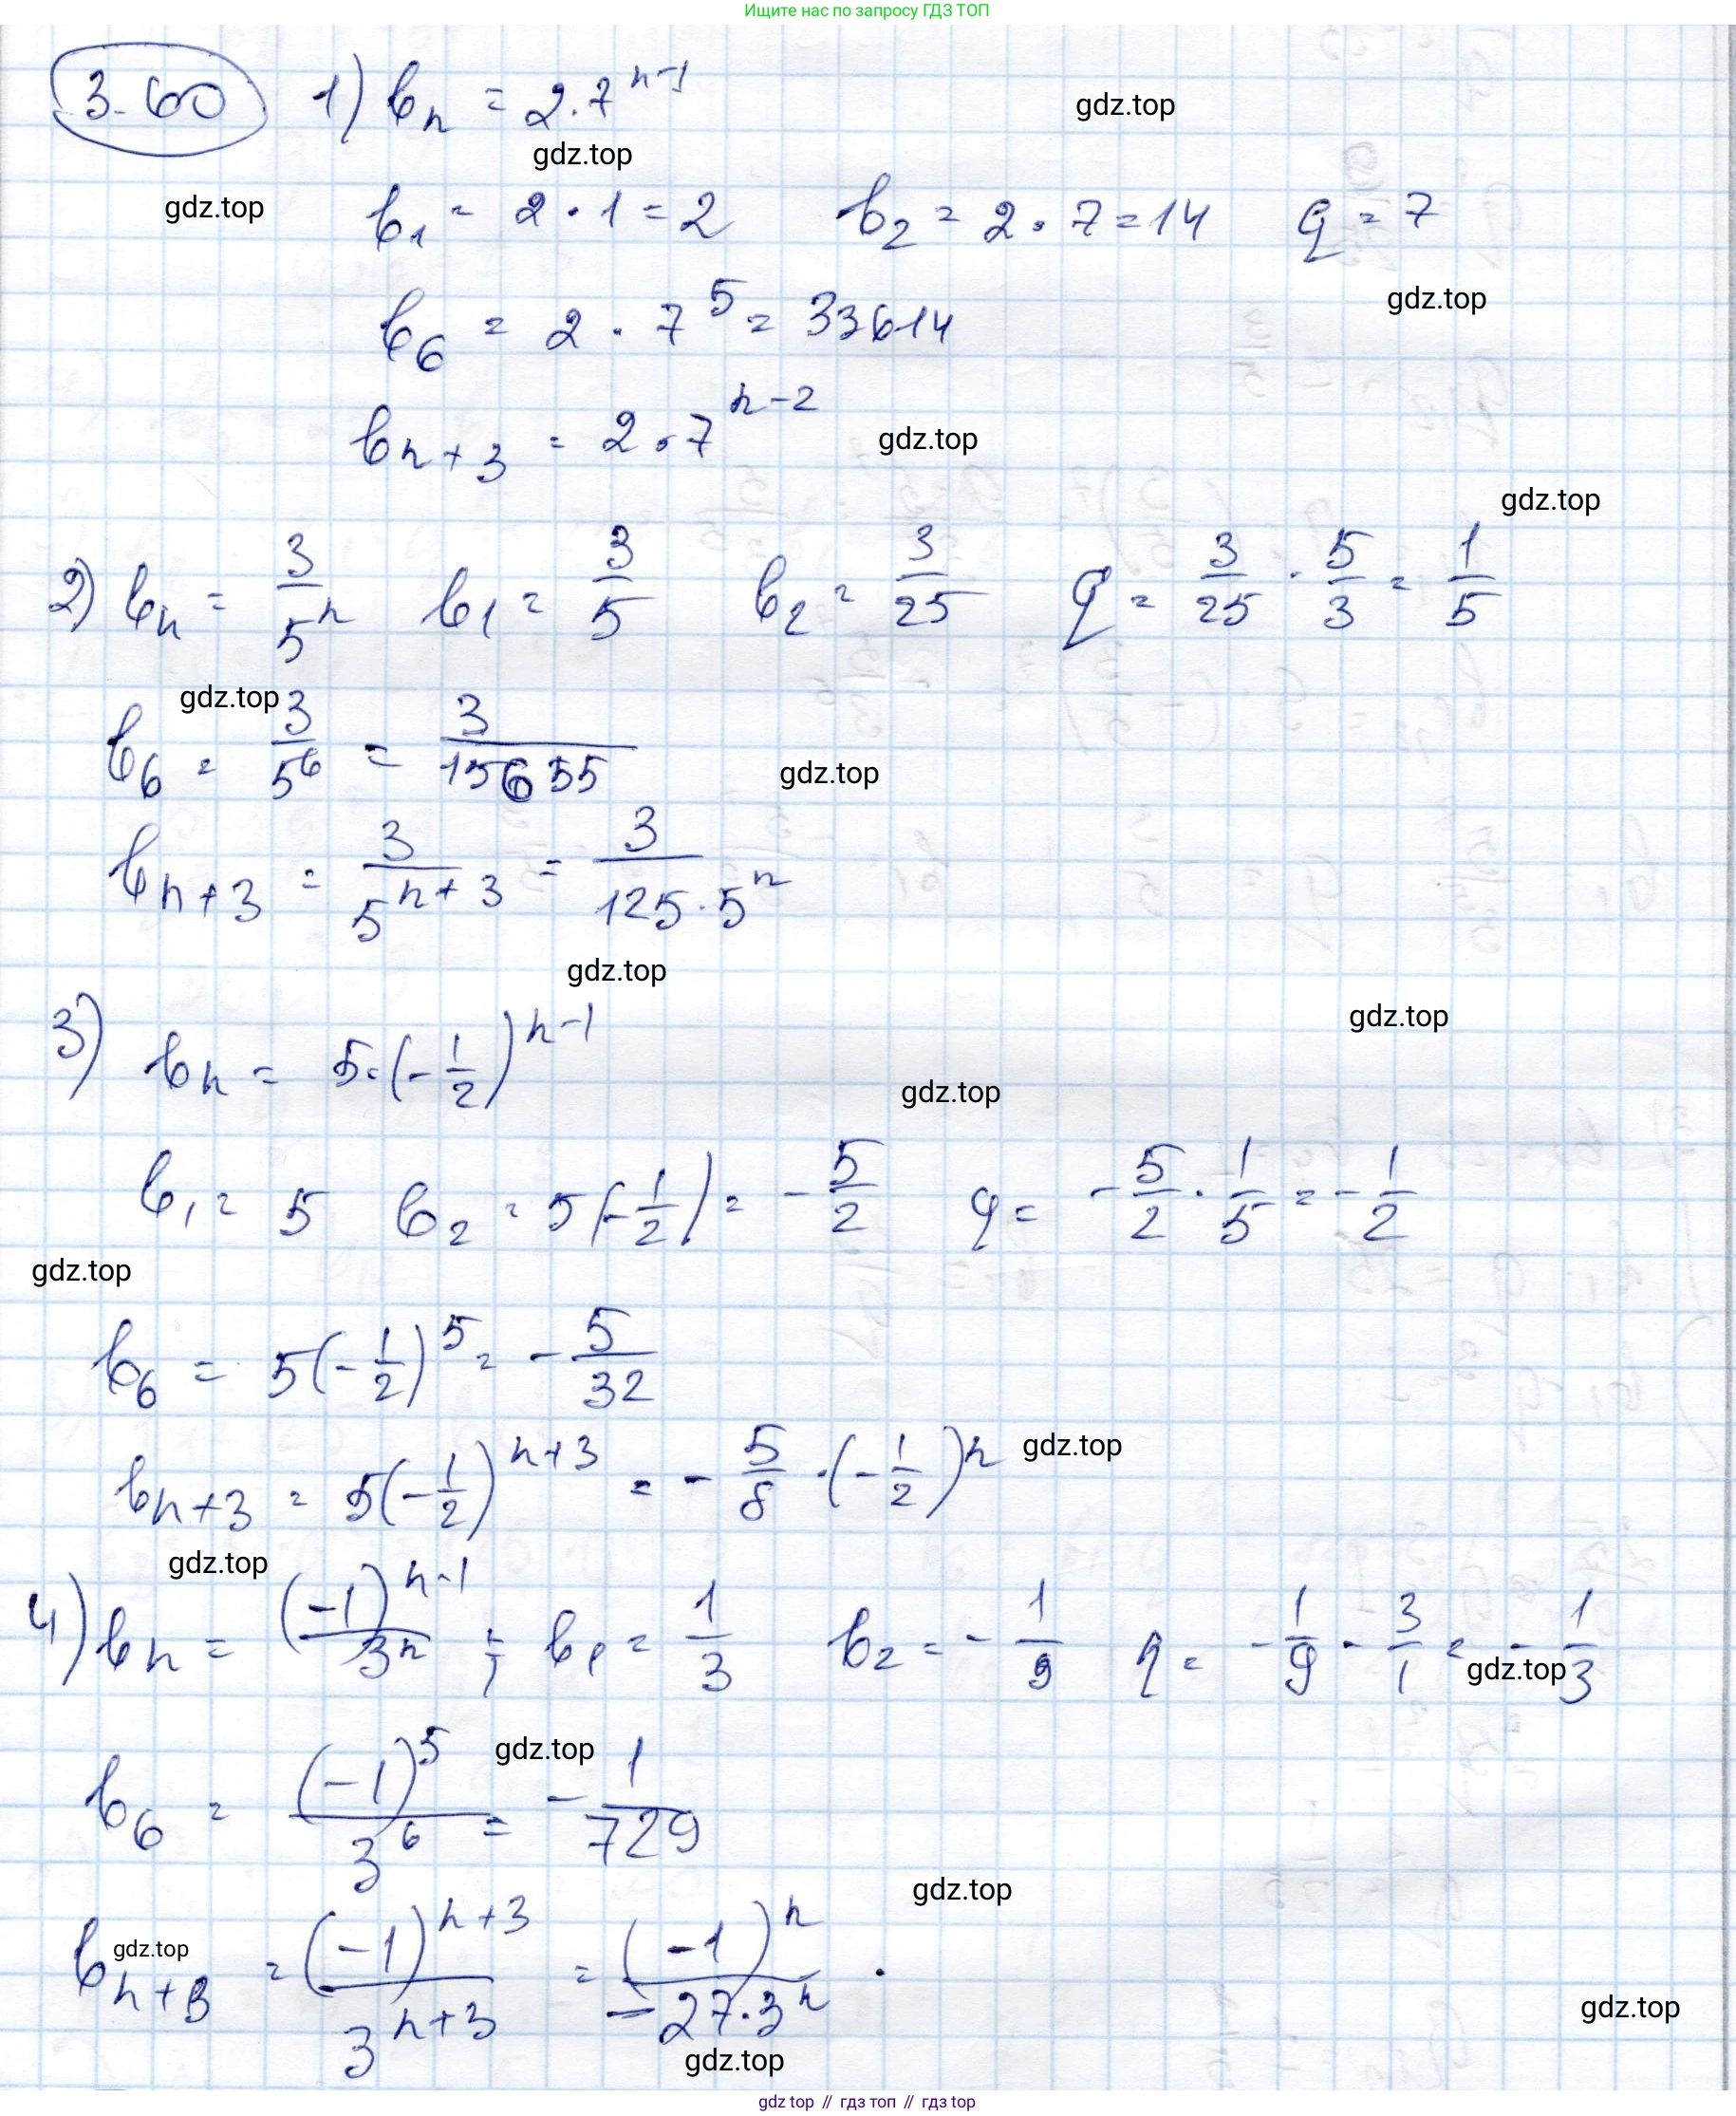 Ищите нас по запросу ГДЗ ТОП
3.60 1) bₙ = 2·7ⁿ⁻¹
gdz.top
gdz.top
gdz.top
b₁ = 2·1 = 2 b₂ = 2·7 = 14 q = 7
gdz.top
b₆ = 2·7⁵ = 33614
bₙ₊₃ = 2·7ⁿ⁻²
gdz.top
gdz.top
2) bₙ = 3/5ⁿ b₁ = 3/5 b₂ = 3/25 q = 3/25 · 5/3 = 1/5
gdz.top
b₆ = 3/5⁶ = 3/15655
gdz.top
bₙ₊₃ = 3/5ⁿ⁺³ = 3/(125·5ⁿ)
gdz.top
gdz.top
3) bₙ = 5·(-1/2)ⁿ⁻¹
gdz.top
b₁ = 5 b₂ = 5(-1/2) = -5/2 q = -5/2 · 1/5 = -1/2
gdz.top
b₆ = 5(-1/2)⁵ = -5/32
bₙ₊₃ = 5(-1/2)ⁿ⁺³ = -5/8 ·(-1/2)ⁿ
gdz.top
gdz.top
4) bₙ = (-1)ⁿ⁻¹/3ⁿ ; b₁ = 1/3 b₂ = -1/9 q = -1/9 · 3/1 = -1/3
gdz.top
gdz.top
b₆ = (-1)⁵/3⁶ = -1/729
gdz.top
bₙ₊₃ = (-1)ⁿ⁺³/3ⁿ⁺³ = (-1)ⁿ/(-27·3ⁿ) .
gdz.top
gdz.top
gdz.top
gdz.top // гдз топ // гдз top